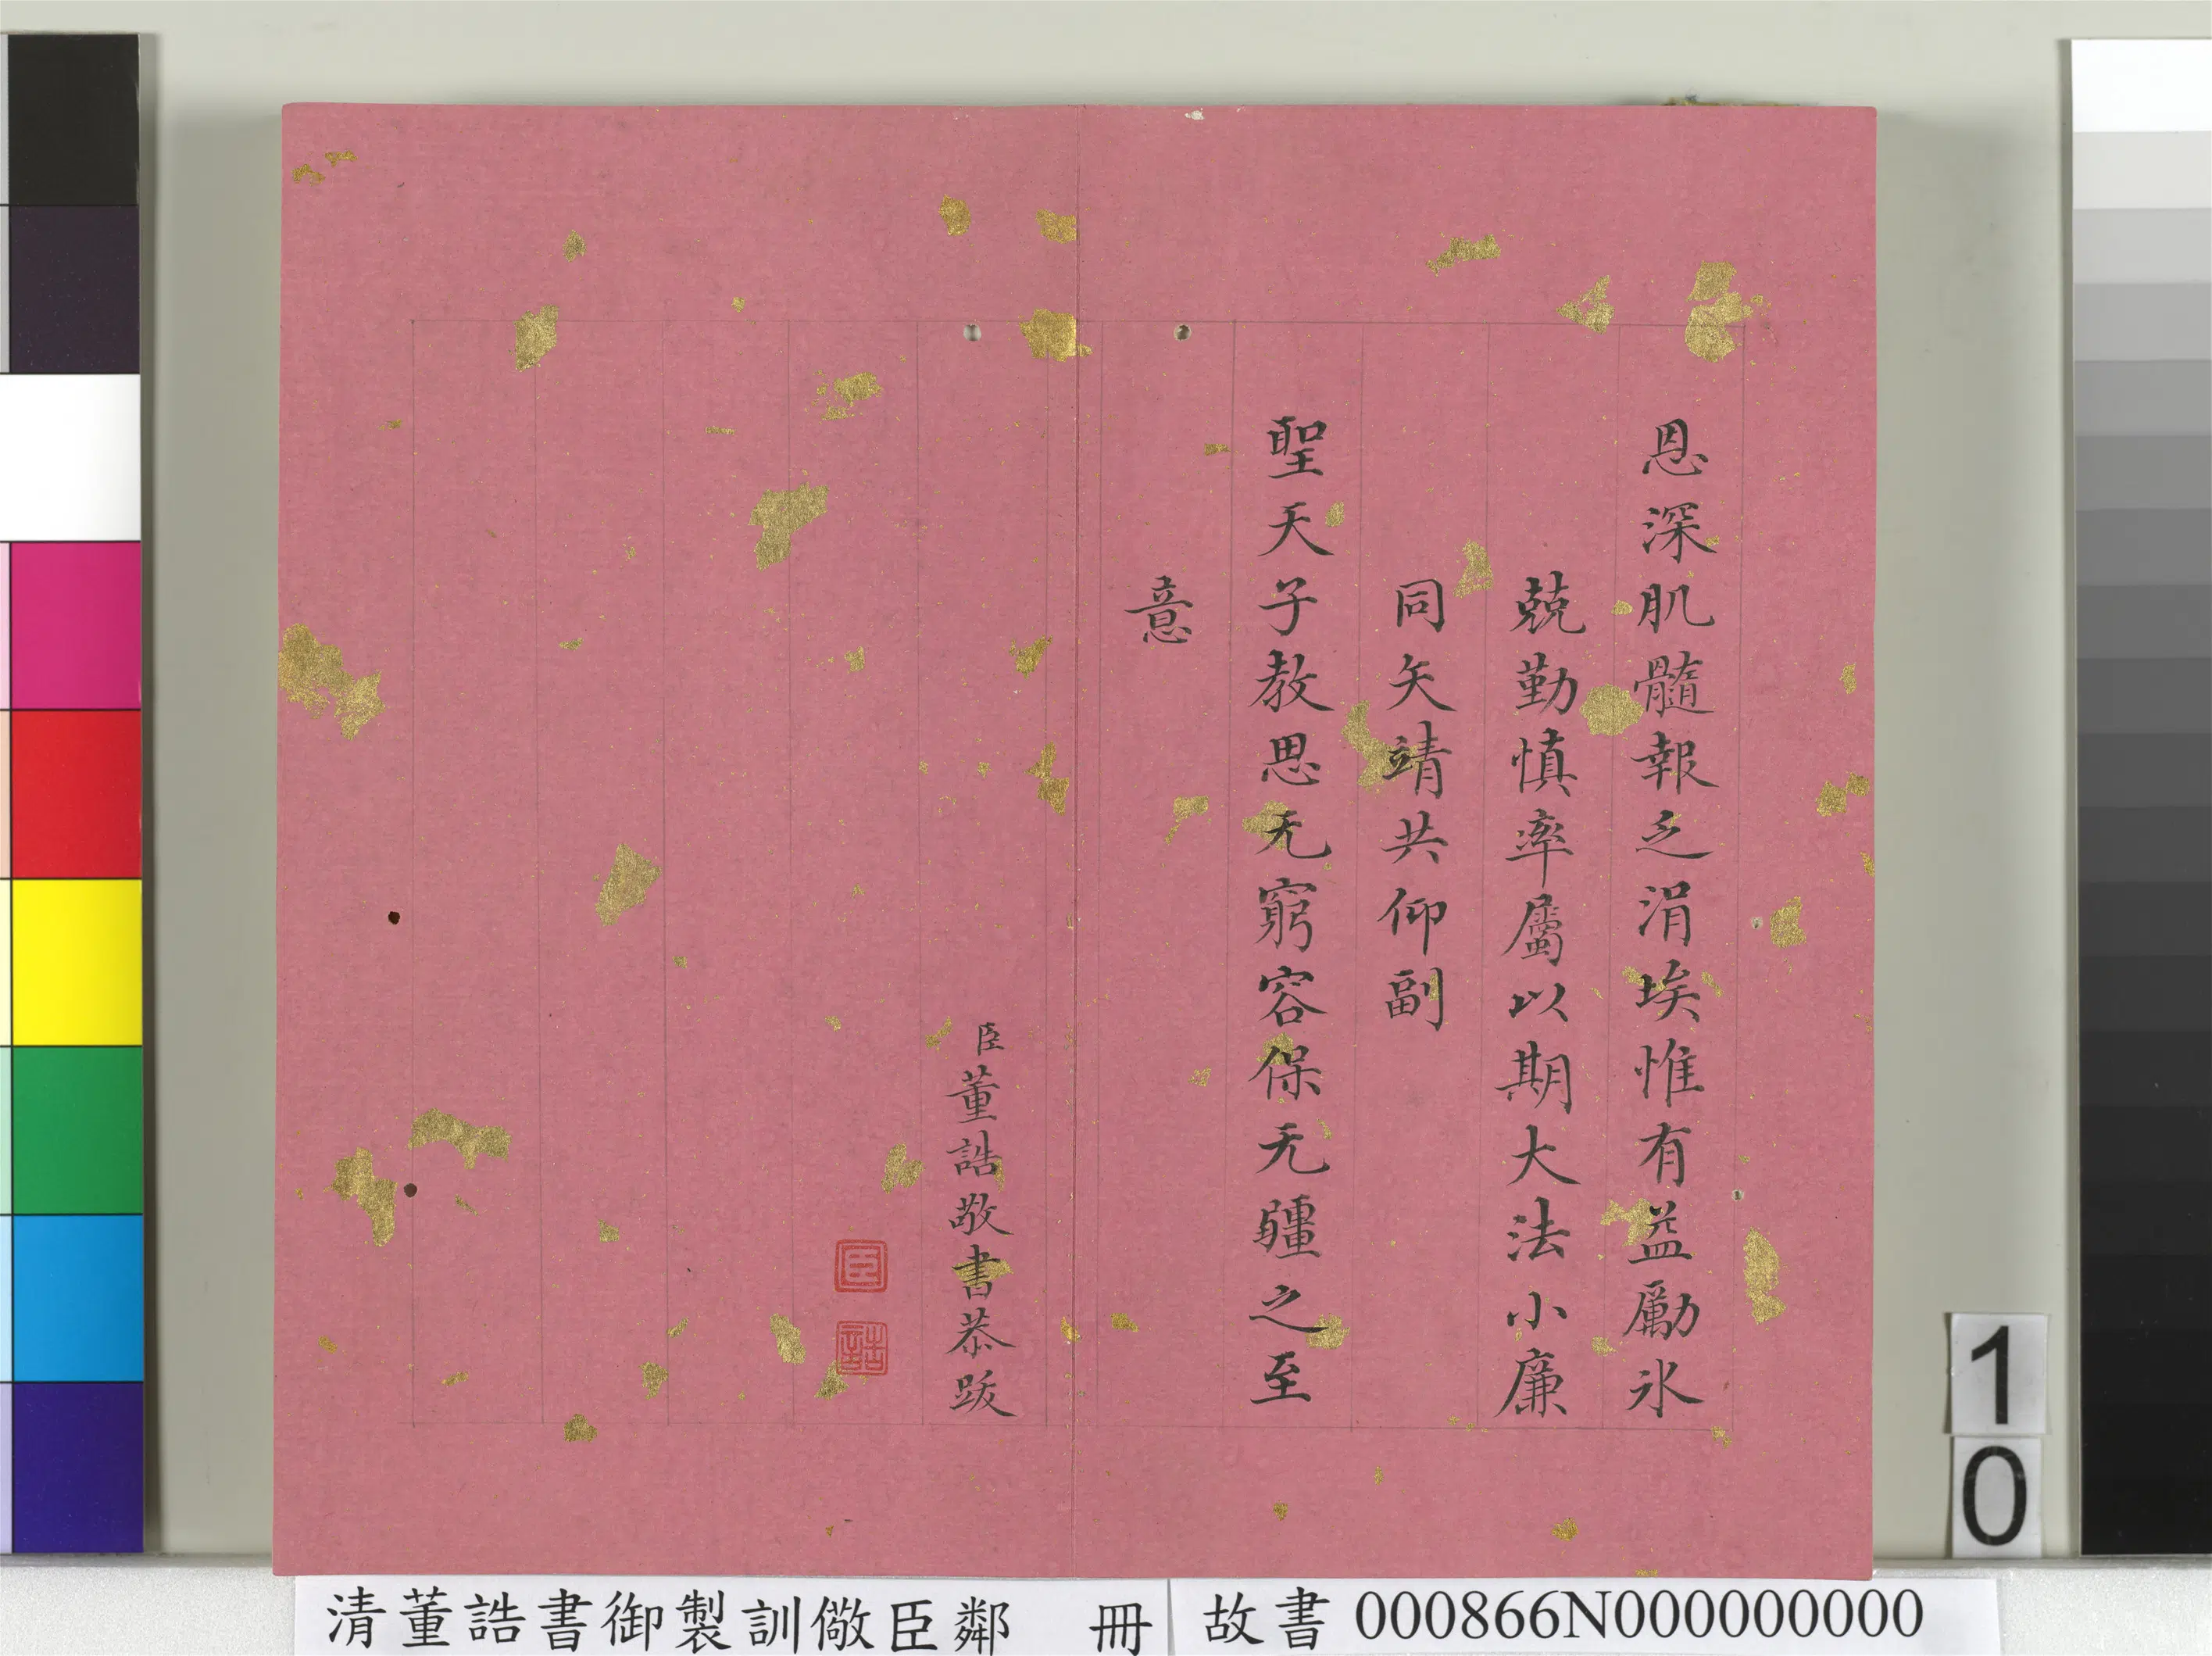 恩深肌髓報乏涓埃惟有益勵氷
兢勤慎率屬以期大法小廉
同矢靖共仰副
聖天子教思无窮容保无疆之至
意
臣董誥敬書恭跋
臣
誥
清董誥書御製訓儆臣鄰 冊
故書 000866N000000000
10